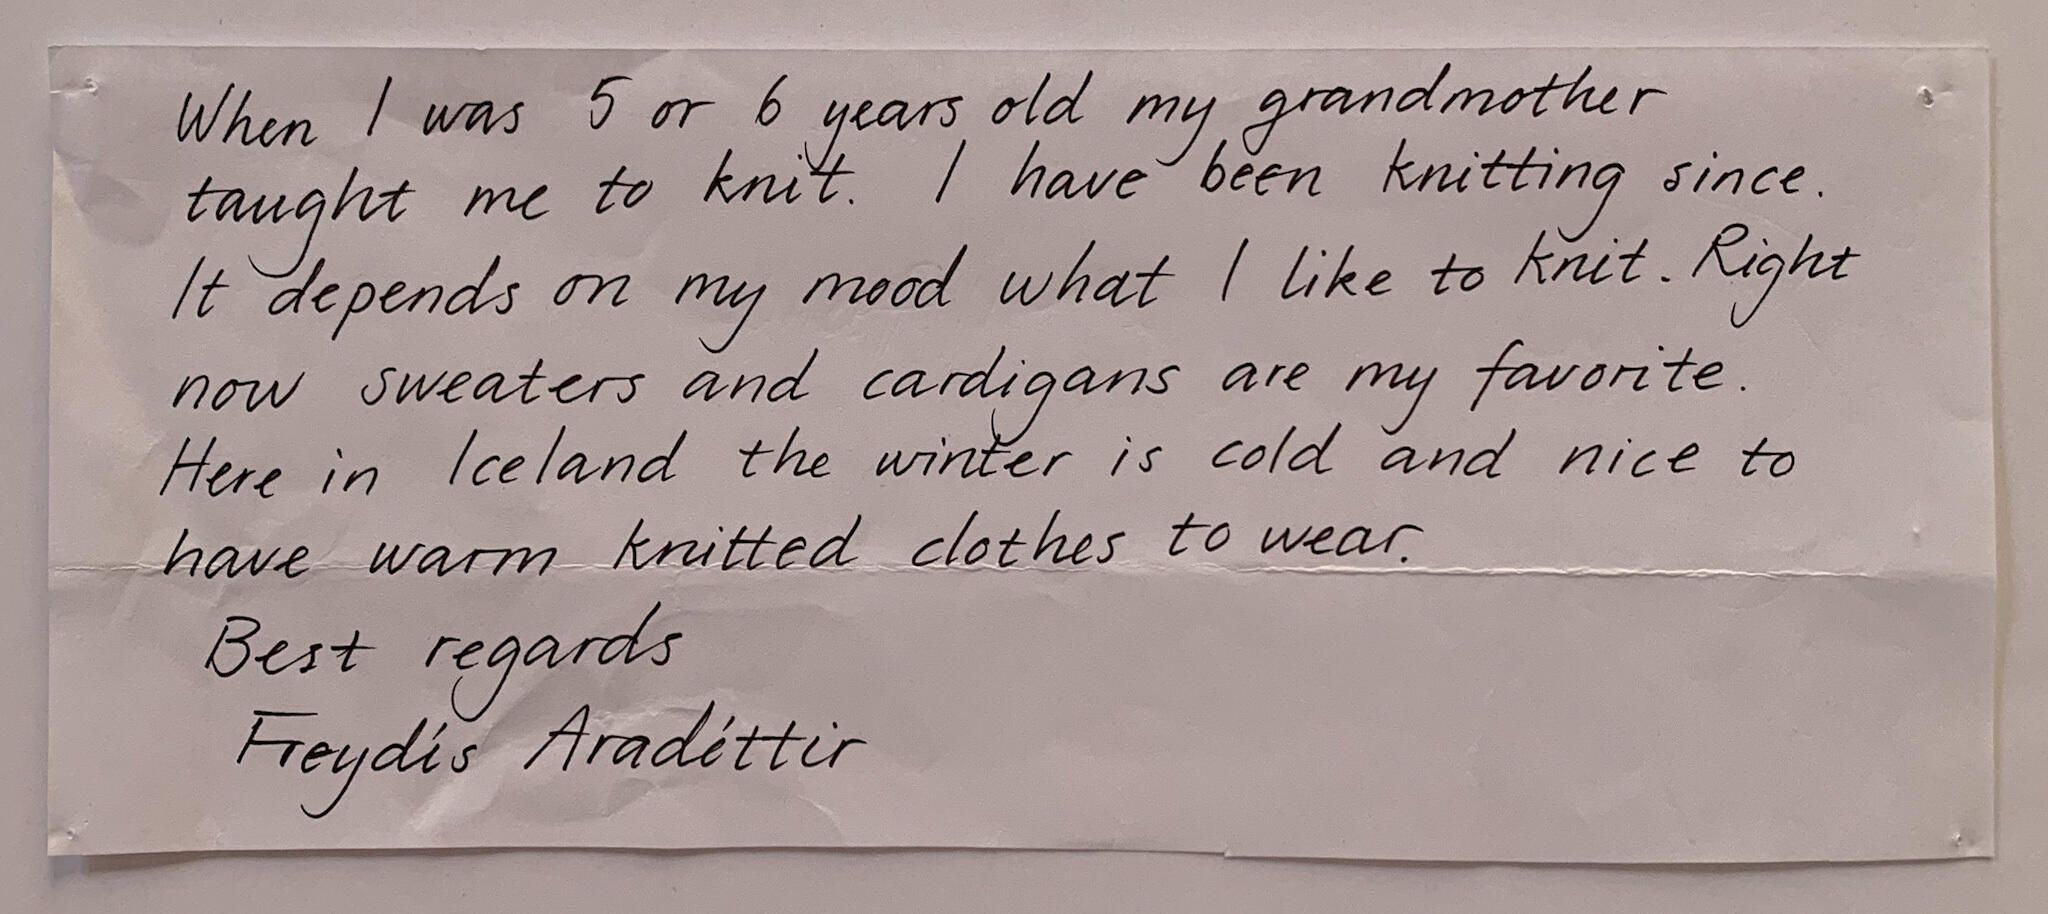 When I was 5 or 6 years old my grandmother
taught me to knit. I have been knitting since.
It depends on my mood what I like to knit. Right
now sweaters and cardigans are my favorite.
Here in Iceland the winter is cold and nice to
have warm knitted clothes to wear.
Best regards
Freydís Aradóttir